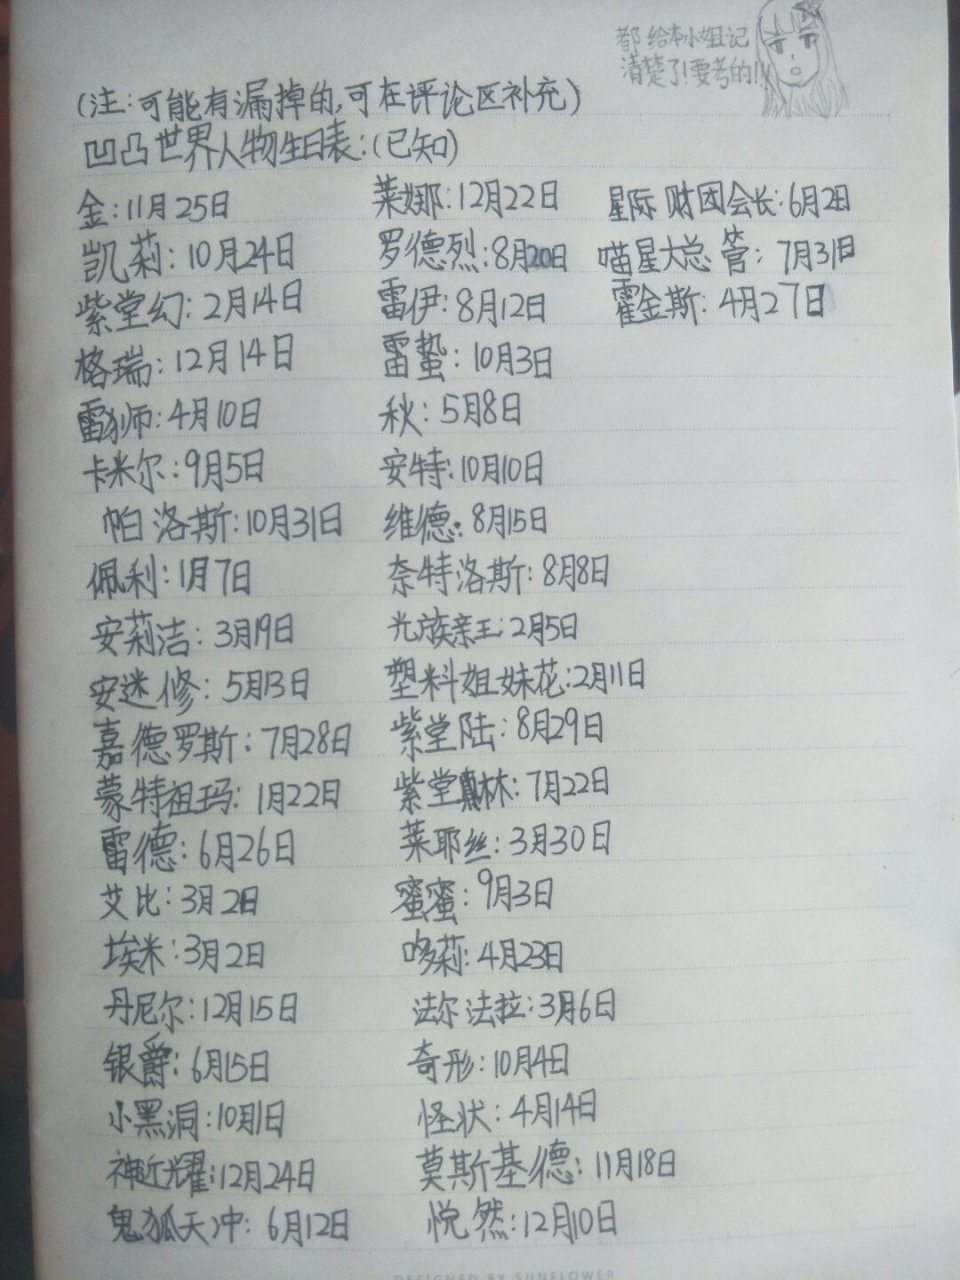 都给本小姐记
清楚了!要考的!!
(注:可能有漏掉的,可在评论区补充)
凹凸世界人物生日表:(已知)
金:11月25日 莱娜:12月22日 星际财团会长:6月2日
凯莉:10月24日 罗德烈:8月20日 喵星大总管:7月31日
紫堂幻:2月14日 雷伊:8月12日 霍金斯:4月27日
格瑞:12月14日 雷蛰:10月3日
雷狮:4月10日 秋:5月8日
卡米尔:9月5日 安特:10月10日
帕洛斯:10月31日 维德:8月15日
佩利:1月7日 奈特洛斯:8月8日
安莉洁:3月19日 光族亲王:2月5日
安迷修:5月13日 塑料姐妹花:2月11日
嘉德罗斯:7月28日 紫堂陆:8月29日
蒙特祖玛:1月22日 紫堂真林:7月22日
雷德:6月26日 莱耶丝:3月30日
艾比:3月2日 蜜蜜:9月3日
埃米:3月2日 哆莉:4月23日
丹尼尔:12月15日 法尔法拉:3月6日
银爵:6月15日 奇形:10月4日
小黑洞:10月1日 怪状:4月14日
神近耀:12月24日 莫斯基德:11月18日
鬼狐天冲:6月12日 悦然:12月10日
DESIGNED BY SUNFLOWER